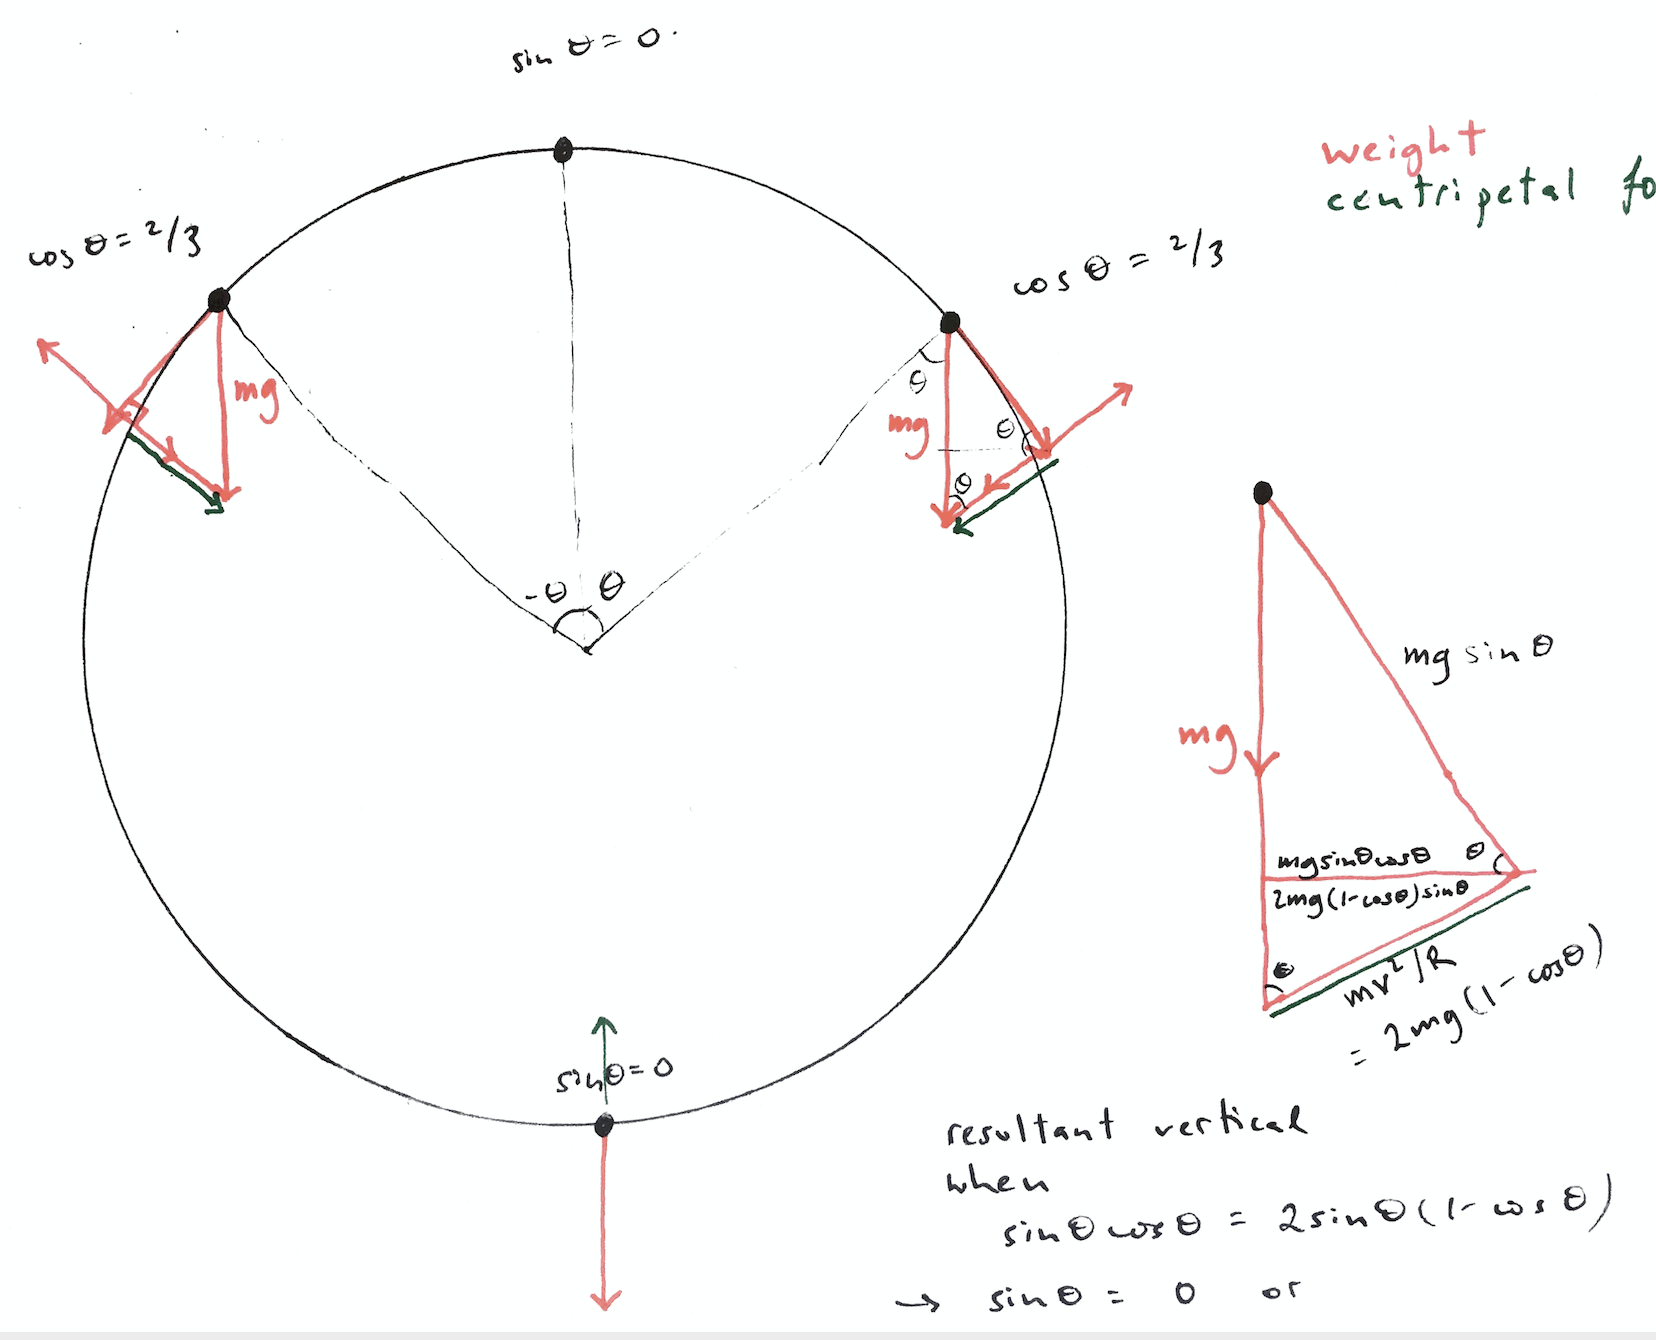 sin θ = 0.
weight
centripetal fo
cos θ = 2/3
cos θ = 2/3
mg
θ
mg
θ
θ
-θ θ
mg sin θ
mg
mg sinθ cosθ
θ
2mg(1-cosθ)sinθ
θ
mv²/R
= 2mg(1-cosθ)
sinθ = 0
resultant vertical
when
sin θ cos θ = 2 sin θ (1- cos θ)
→ sin θ = 0 or